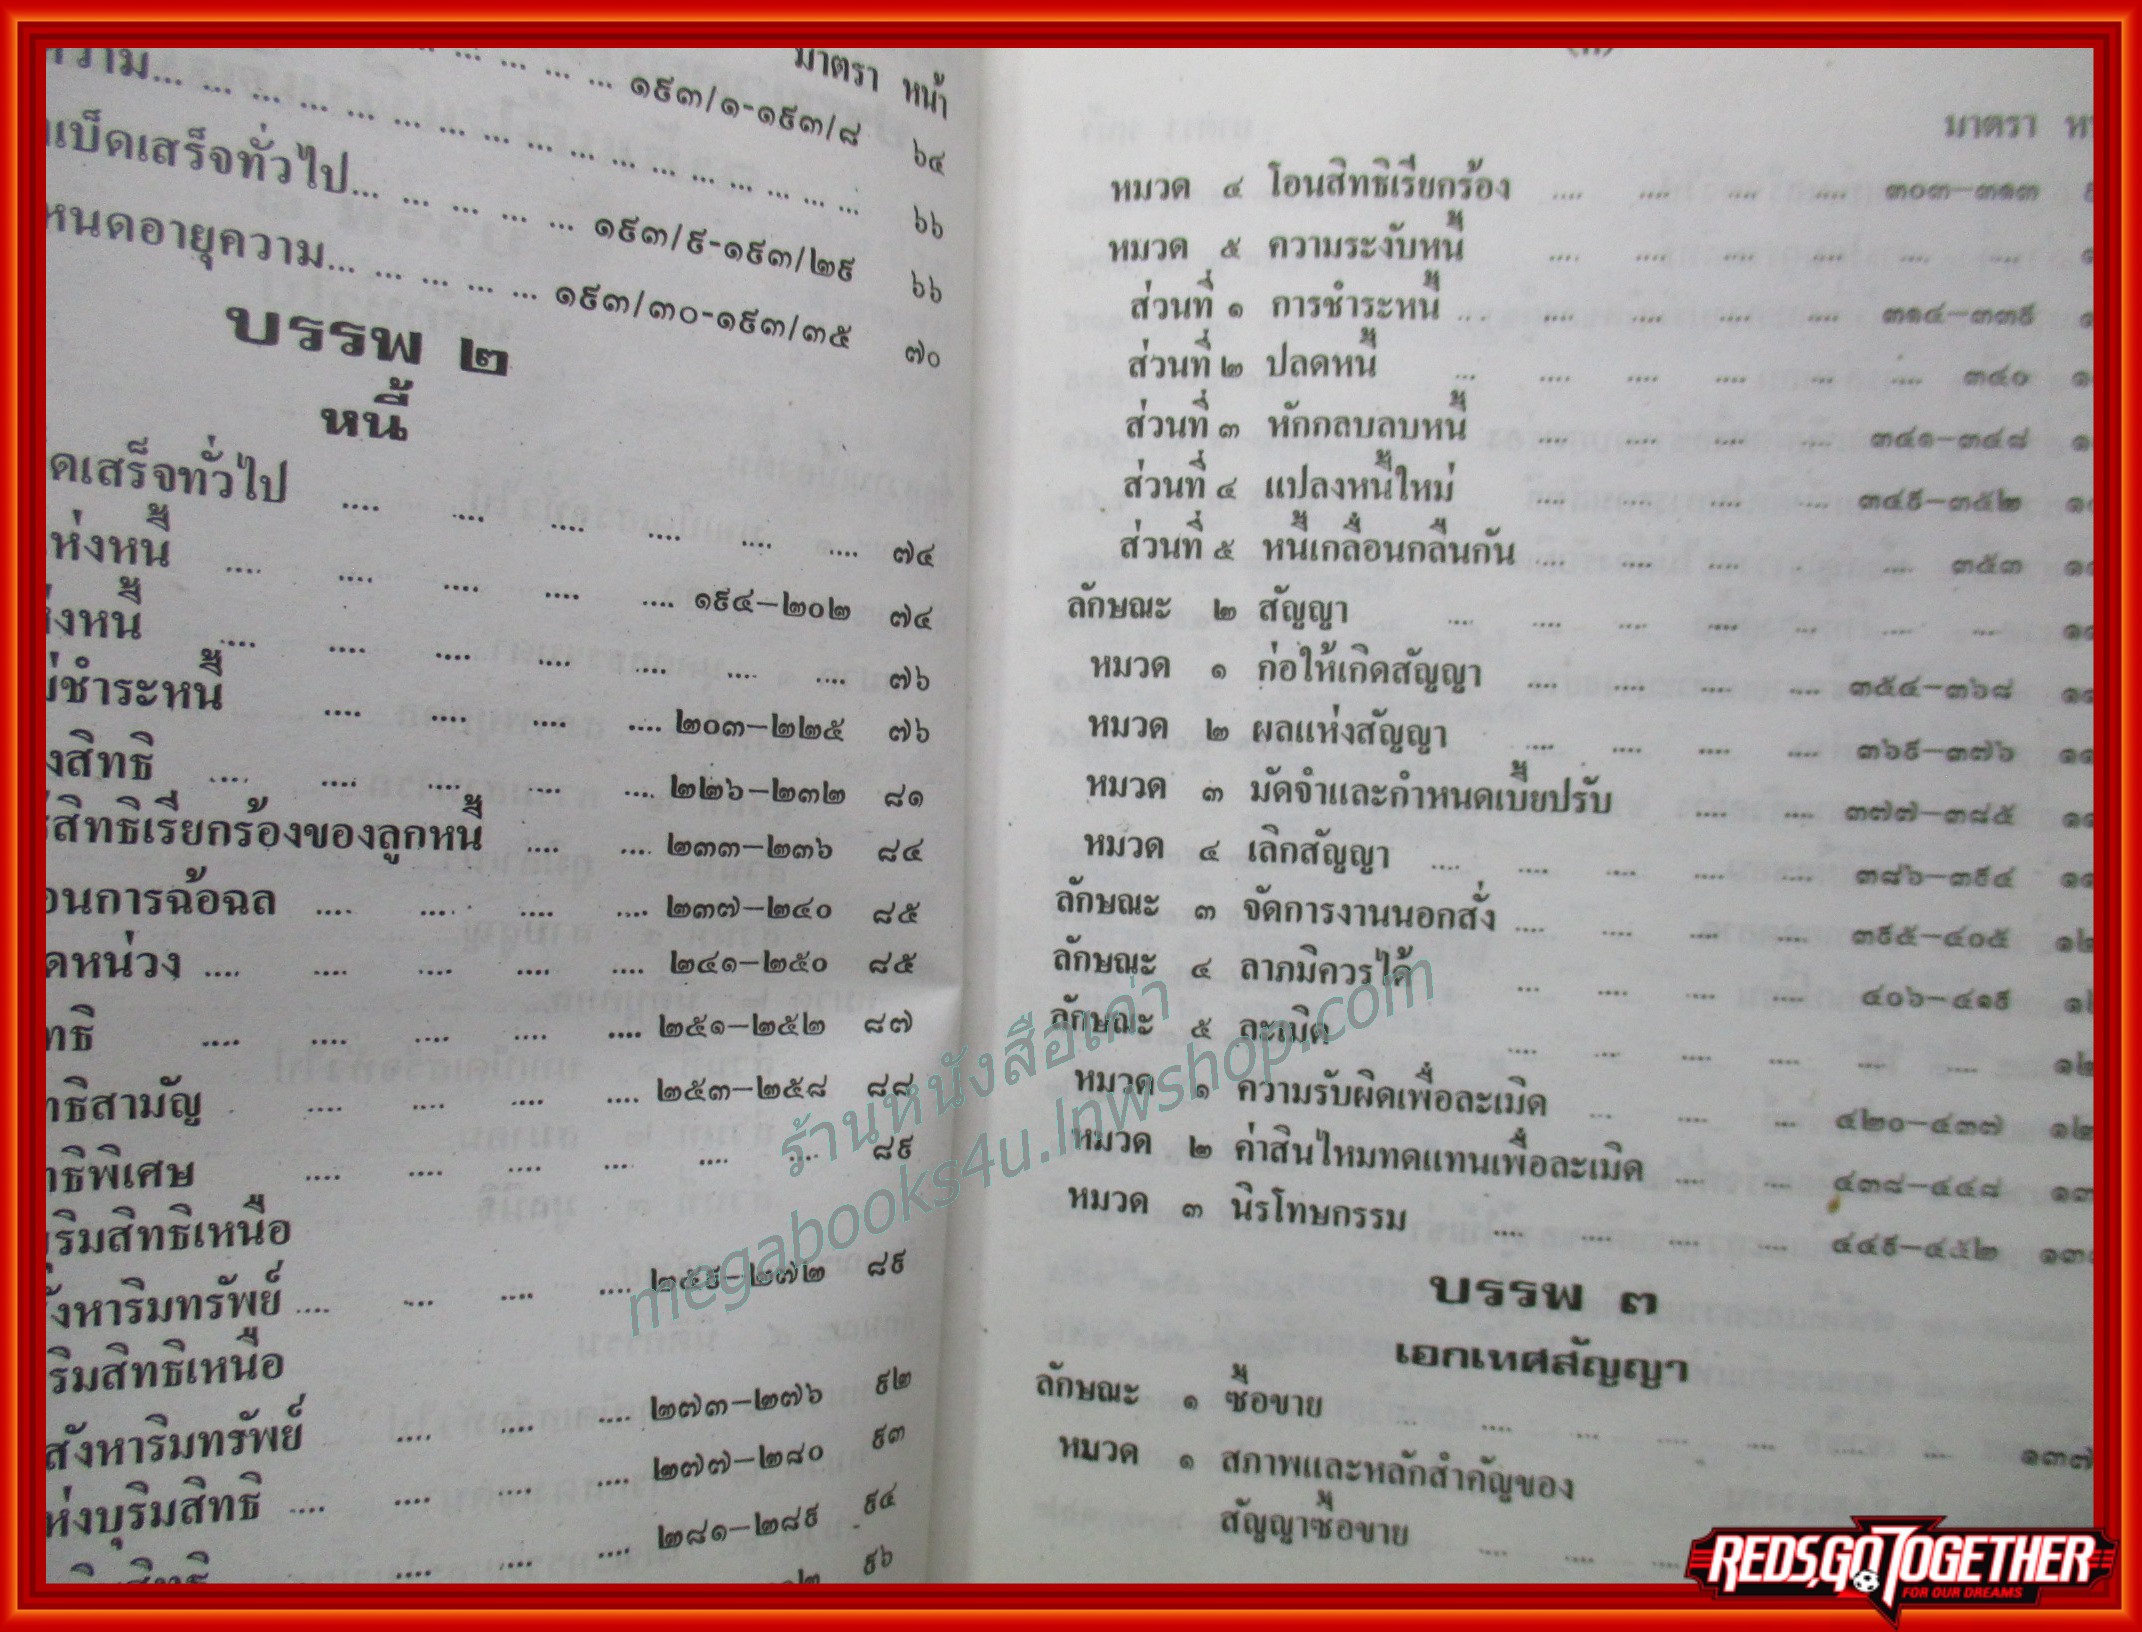 มาตรา หน้า
ความ... ... ... ... ... ... ... ... ๑๙๓/๑-๑๙๓/๘ ๖๔
เบ็ดเสร็จทั่วไป... ... ... ... ... ๑๙๓/๙-๑๙๓/๒๙ ๖๖
หนดอายุความ... ... ... ... ... ๑๙๓/๓๐-๑๙๓/๓๕ ๗๐
บรรพ ๒
หนี้
ดเสร็จทั่วไป .... .... .... .... .... .... ๗๔
ห่งหนี้ .... .... .... .... .... ๑๙๔–๒๐๒ ๗๔
ห่งหนี้ .... .... .... .... .... .... .... ๗๖
ม่ชำระหนี้ .... .... .... .... ๒๐๓–๒๒๕ ๗๖
งสิทธิ .... .... .... .... .... ๒๒๖–๒๓๒ ๘๑
สิทธิเรียกร้องของลูกหนี้ .... .... ๒๓๓–๒๓๖ ๘๔
อนการฉ้อฉล .... .... .... .... ๒๓๗–๒๔๐ ๘๕
ดหน่วง .... .... .... .... .... ๒๔๑–๒๕๐ ๘๕
ทธิ .... .... .... .... .... ๒๕๑–๒๕๒ ๘๗
ทธิสามัญ .... .... .... .... ๒๕๓–๒๕๘ ๘๘
ทธิพิเศษ .... .... .... .... .... .... ๘๙
ุริมสิทธิเหนือ
ังหาริมทรัพย์ .... .... .... .... ๒๕๙–๒๗๒ ๘๙
ริมสิทธิเหนือ
สังหาริมทรัพย์ .... .... .... ๒๗๓–๒๗๖ ๙๒
ห่งบุริมสิทธิ .... .... .... .... ๒๗๗–๒๘๐ ๙๓
.... .... .... ๒๘๑–๒๘๙ ๙๔
๙๖
มาตรา
หมวด ๔ โอนสิทธิเรียกร้อง .... .... .... .... ๓๐๓–๓๑๓
หมวด ๕ ความระงับหนี้ .... .... .... .... .... ....
ส่วนที่ ๑ การชำระหนี้ .... .... .... .... .... ๓๑๔–๓๓๙
ส่วนที่ ๒ ปลดหนี้ .... .... .... .... .... .... ๓๔๐
ส่วนที่ ๓ หักกลบลบหนี้ .... .... .... .... ๓๔๑–๓๔๘
ส่วนที่ ๔ แปลงหนี้ใหม่ .... .... .... .... ๓๔๙–๓๕๒
ส่วนที่ ๕ หนี้เกลื่อนกลืนกัน .... .... .... .... .... ๓๕๓
ลักษณะ ๒ สัญญา .... .... .... .... .... .... ....
หมวด ๑ ก่อให้เกิดสัญญา .... .... .... .... ๓๕๔–๓๖๘
หมวด ๒ ผลแห่งสัญญา .... .... .... .... ๓๖๙–๓๗๖
หมวด ๓ มัดจำและกำหนดเบี้ยปรับ .... .... ๓๗๗–๓๘๕
หมวด ๔ เลิกสัญญา .... .... .... .... .... ๓๘๖–๓๙๔
ลักษณะ ๓ จัดการงานนอกสั่ง .... .... .... .... ๓๙๕–๔๐๕
ลักษณะ ๔ ลาภมิควรได้ .... .... .... .... ๔๐๖–๔๑๙
ลักษณะ ๕ ละเมิด .... .... .... .... .... ....
หมวด ๑ ความรับผิดเพื่อละเมิด .... .... .... ๔๒๐–๔๓๗
หมวด ๒ ค่าสินไหมทดแทนเพื่อละเมิด .... .... ๔๓๘–๔๔๘
หมวด ๓ นิรโทษกรรม .... .... .... .... ๔๔๙–๔๕๒
บรรพ ๓
เอกเทศสัญญา
ลักษณะ ๑ ซื้อขาย .... .... .... .... .... .... .... ๑๓๗
หมวด ๑ สภาพและหลักสำคัญของ
สัญญาซื้อขาย .... .... ....
ร้านหนังสือเก่า
megabooks4u.lnwshop.com
REDS, GO TOGETHER
FOR OUR DREAMS